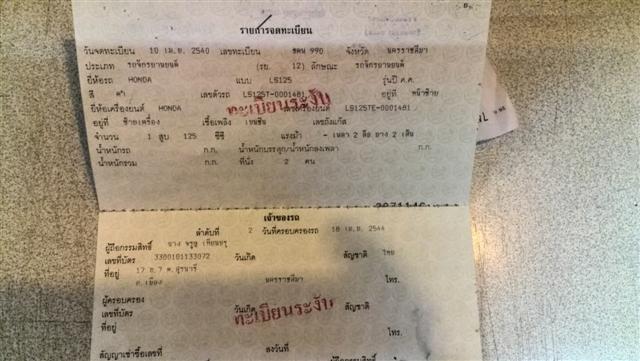 รายการจดทะเบียน
วันจดทะเบียน 10 เม.ย. 2540 เลขทะเบียน 990 จังหวัด นครราชสีมา
ประเภท รถจักรยานยนต์ (รย. 12) ลักษณะ รถจักรยานยนต์
ยี่ห้อรถ HONDA แบบ LS125 รุ่นปี ค.ศ.
สี ดำ เลขตัวรถ LS125T-0001481 อยู่ที่ หน้าซ้าย
ทะเบียนระงับ
ยี่ห้อเครื่องยนต์ HONDA เลขเครื่องยนต์ LS125TE-0001481
อยู่ที่ ซ้ายเครื่อง เชื้อเพลิง เบนซิน เลขถังแก๊ส
จำนวน 1 สูบ 125 ซีซี แรงม้า - เพลา 2 ล้อ ยาง 2 เส้น
น้ำหนักรถ ก.ก. น้ำหนักบรรทุก/น้ำหนักลงเพลา ก.ก.
น้ำหนักรวม ก.ก. ที่นั่ง 2 คน
เจ้าของรถ
ลำดับที่ 2 วันที่ครอบครองรถ 18 เม.ย. 2544
ผู้ถือกรรมสิทธิ์ นาง จรูญ
เลขที่บัตร 3300101133072 วันเกิด สัญชาติ ไทย
ที่อยู่ 17 ซ.7 ต.สุรนารี
อ.เมือง นครราชสีมา โทร.
ผู้ครอบครอง
เลขที่บัตร วันเกิด สัญชาติ
ทะเบียนระงับ
ที่อยู่ โทร.
สัญญาเช่าซื้อเลขที่ ลงวันที่